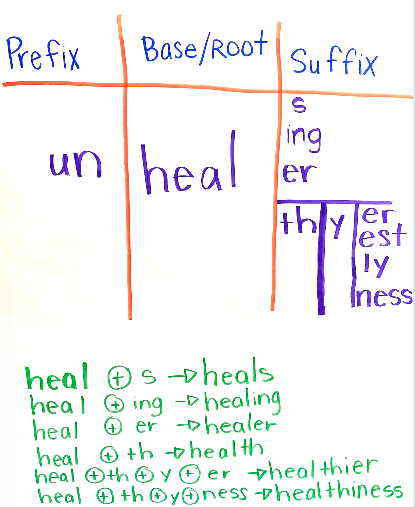 Prefix Base/Root Suffix
s
ing
un heal er
th y er
est
ly
ness
heal + s → heals
heal + ing → healing
heal + er → healer
heal + th → health
heal + th + y + er → healthier
heal + th + y + ness → healthiness